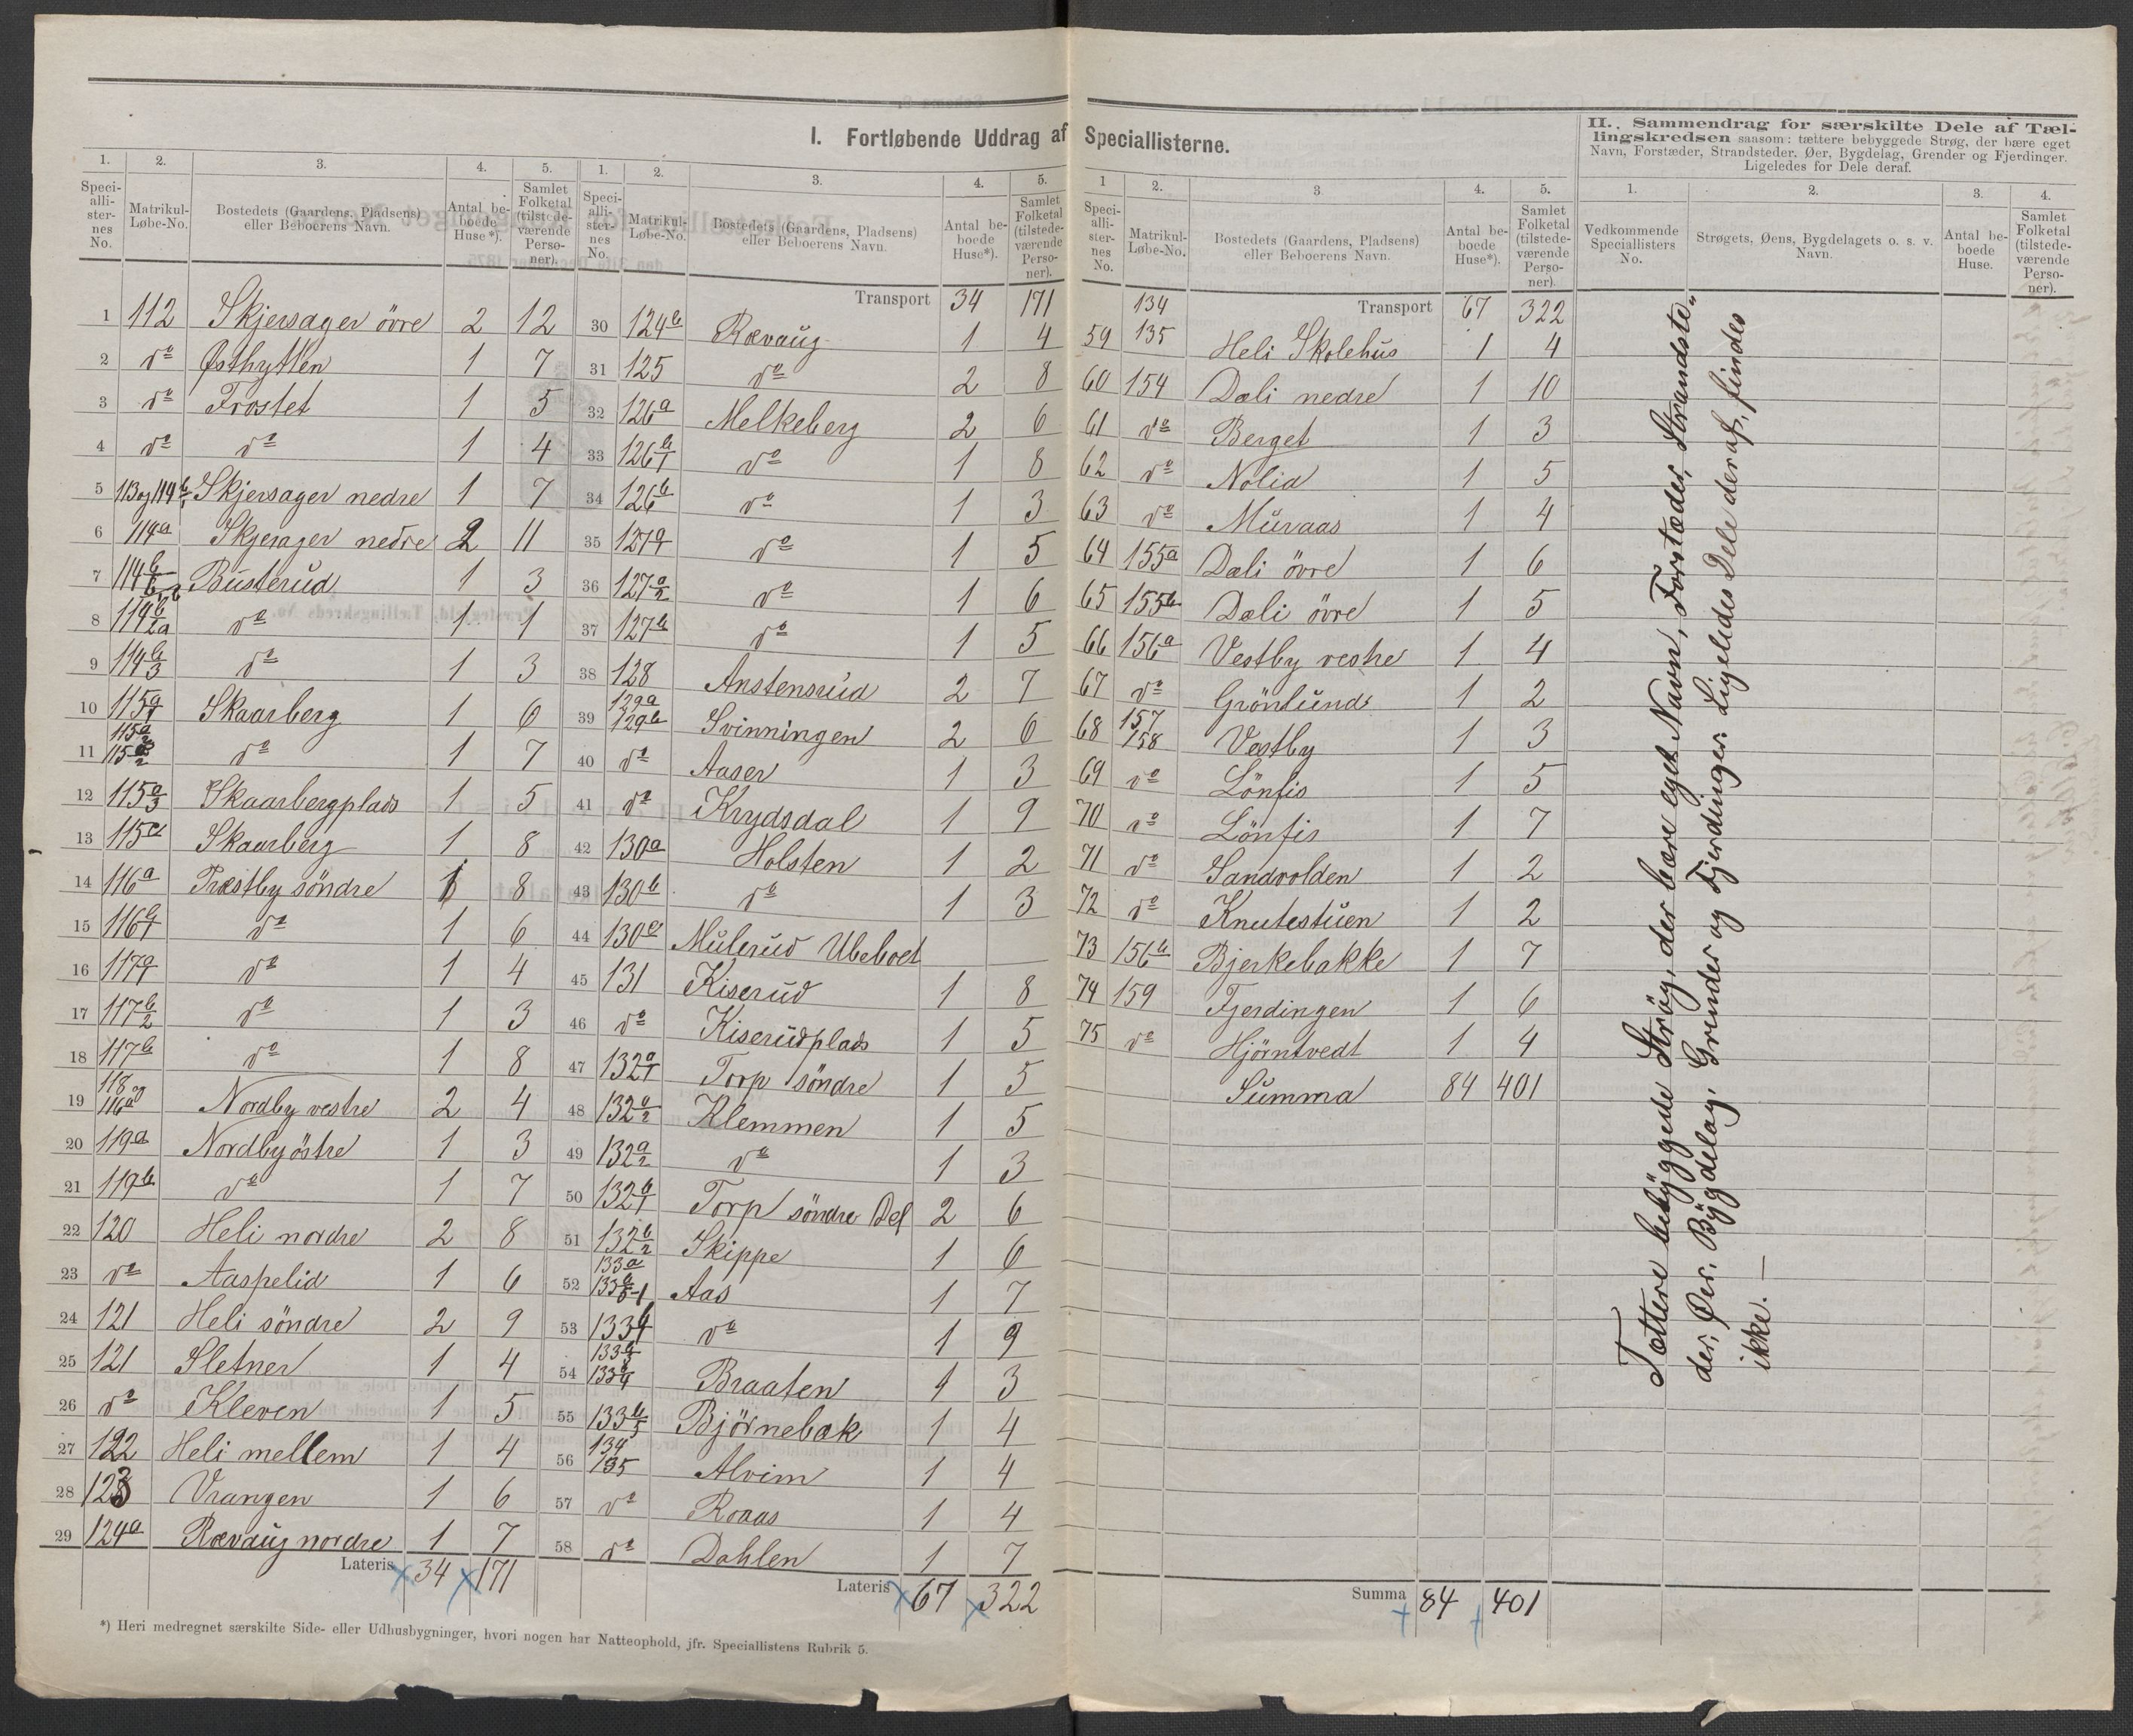 I. Fortløbende Uddrag af Speciallisterne.
1. 2. 3. 4. 5.
Speciallisternes No. Matrikul-Løbe-No. Bostedets (Gaardens, Pladsens) eller Beboerens Navn. Antal beboede Huse*). Samlet Folketal (tilstedeværende Personer).
1 112 Skjersager övre 2 12
2 do Østhytten 1 7
3 do Frostet 1 5
4 do do 1 4
5 113 og 114b Skjersager nedre 1 7
6 114a Skjersager nedre 2 11
7 114b Busterud 1 3
8 114b 2a do 1 1
9 114b/3 do 1 3
10 115a/1 Skaarberg 1 6
11 115a/2 do 1 7
12 115a/3 Skaarbergplads 1 5
13 115 Skaarberg 1 8
14 116a Træstby söndre 1 8
15 116b/1 do 1 6
16 117a/1 do 1 4
17 117b/2 do 1 3
18 117b do 1 8
19 118 116a Nordby vestre 2 4
20 119a Nordby östre 1 3
21 119b do 1 7
22 120 Heli nordre 2 8
23 do Aaspelid 1 6
24 121 Heli söndre 2 9
25 121 Sletner 1 4
26 do Kleven 1 5
27 122 Heli mellem 1 4
28 123 Vrangen 1 6
29 124a Rævaug nordre 1 7
Lateris 34 171
*) Heri medregnet særskilte Side- eller Udhusbygninger, hvori nogen har Natteophold, jfr. Speciallistens Rubrik 5.
1. 2. 3. 4. 5.
Speciallisternes No. Matrikul-Løbe-No. Bostedets (Gaardens, Pladsens) eller Beboerens Navn. Antal beboede Huse*). Samlet Folketal (tilstedeværende Personer).
Transport 34 171
30 124b Rævaug 1 4
31 125 do 2 8
32 126a Melkeberg 2 6
33 126b/1 do 1 8
34 126b do 1 3
35 127a/1 do 1 5
36 127a/2 do 1 6
37 127b do 1 5
38 128 Anstensrud 2 7
39 129a 129b Svinningen 2 6
40 do Aaser 1 3
41 do Krydsdal 1 9
42 130a Holsten 1 2
43 130b do 1 3
44 130 Mulerud Ubeboet
45 131 Kiserud 1 8
46 do Kiserudplads 1 5
47 132a/1 Torp söndre 1 5
48 132a/2 Klemmen 1 5
49 132a/2 do 1 3
50 132b/1 Torp söndre Del 2 6
51 132b/2 Skippe 1 6
52 133a Aas 1 7
53 133 do 1 9
54 133 Braaten 1 3
55 133b/5 Björnebæk 1 4
56 134 135 Alvim 1 4
57 do Roaas 1 4
58 do Dahlen 1 7
Lateris 67 322
1 2. 3 4. 5.
Speciallisternes No. Matrikul-Løbe-No. Bostedets (Gaardens, Pladsens) eller Beboerens Navn. Antal beboede Huse*). Samlet Folketal (tilstedeværende Personer).
Transport 67 322
59 134 135 Heli Skolehus 1 4
60 154 Dæli nedre 1 10
61 do Berget 1 3
62 do Nolia 1 5
63 do Muraas 1 4
64 155a Dæli övre 1 6
65 155b Dæli övre 1 5
66 156a Vestby vestre 1 4
67 do Grönlund 1 2
68 157 158 Vestby 1 3
69 do Lönfis 1 5
70 do Lönfis 1 7
71 do Sandvolden 1 2
72 do Knutestuen 1 2
73 156b Bjerkebakke 1 7
74 159 Fjerdingen 1 6
75 do Hjörntvedt 1 4
Summa 84 401
Summa 84 401
II. Sammendrag for særskilte Dele af Tællingskredsen saasom: tættere bebyggede Strøg, der bære eget Navn, Forstæder, Strandsteder, Øer, Bygdelag, Grender og Fjerdinger. Ligeledes for Dele deraf.
1. 2. 3. 4.
Vedkommende Speciallisters No. Strøgets, Øens, Bygdelagets o. s. v. Navn. Antal beboede Huse. Samlet Folketal (tilstedeværende Personer).
Tættere bebyggede Strøg, der bære eget Navn, Forstæder, Strandste-
der, Øer, Bygdelag, Grender og Fjerdinger. Ligeledes Dele deraf, findes
ikke. —